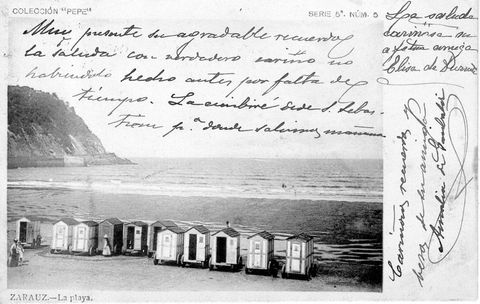 COLECCIÓN "PEPE"
SERIE 5ª. NÚM. 5
Muy presente su agradable recuerdo
la saluda con verdadero cariño no
habiéndolo hecho antes por falta de
tiempo. La escribiré desde S. Sebas-
tian pª donde salimos mañana
La saluda
cariñosa su
afetma amiga
Elisa de
Cariñosos recuerdos y
besos de su amiga
de
ZARAUZ.—La playa.